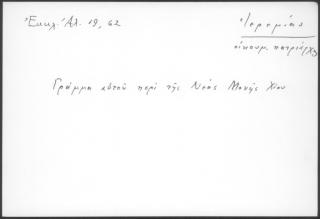 Ἐκκλ. Ἀλ. 19, 62
Ἱερεμίας
οἰκουμ. πατριάρχης
Γράμμα αὐτοῦ περὶ τῆς Νέας Μονῆς Χίου